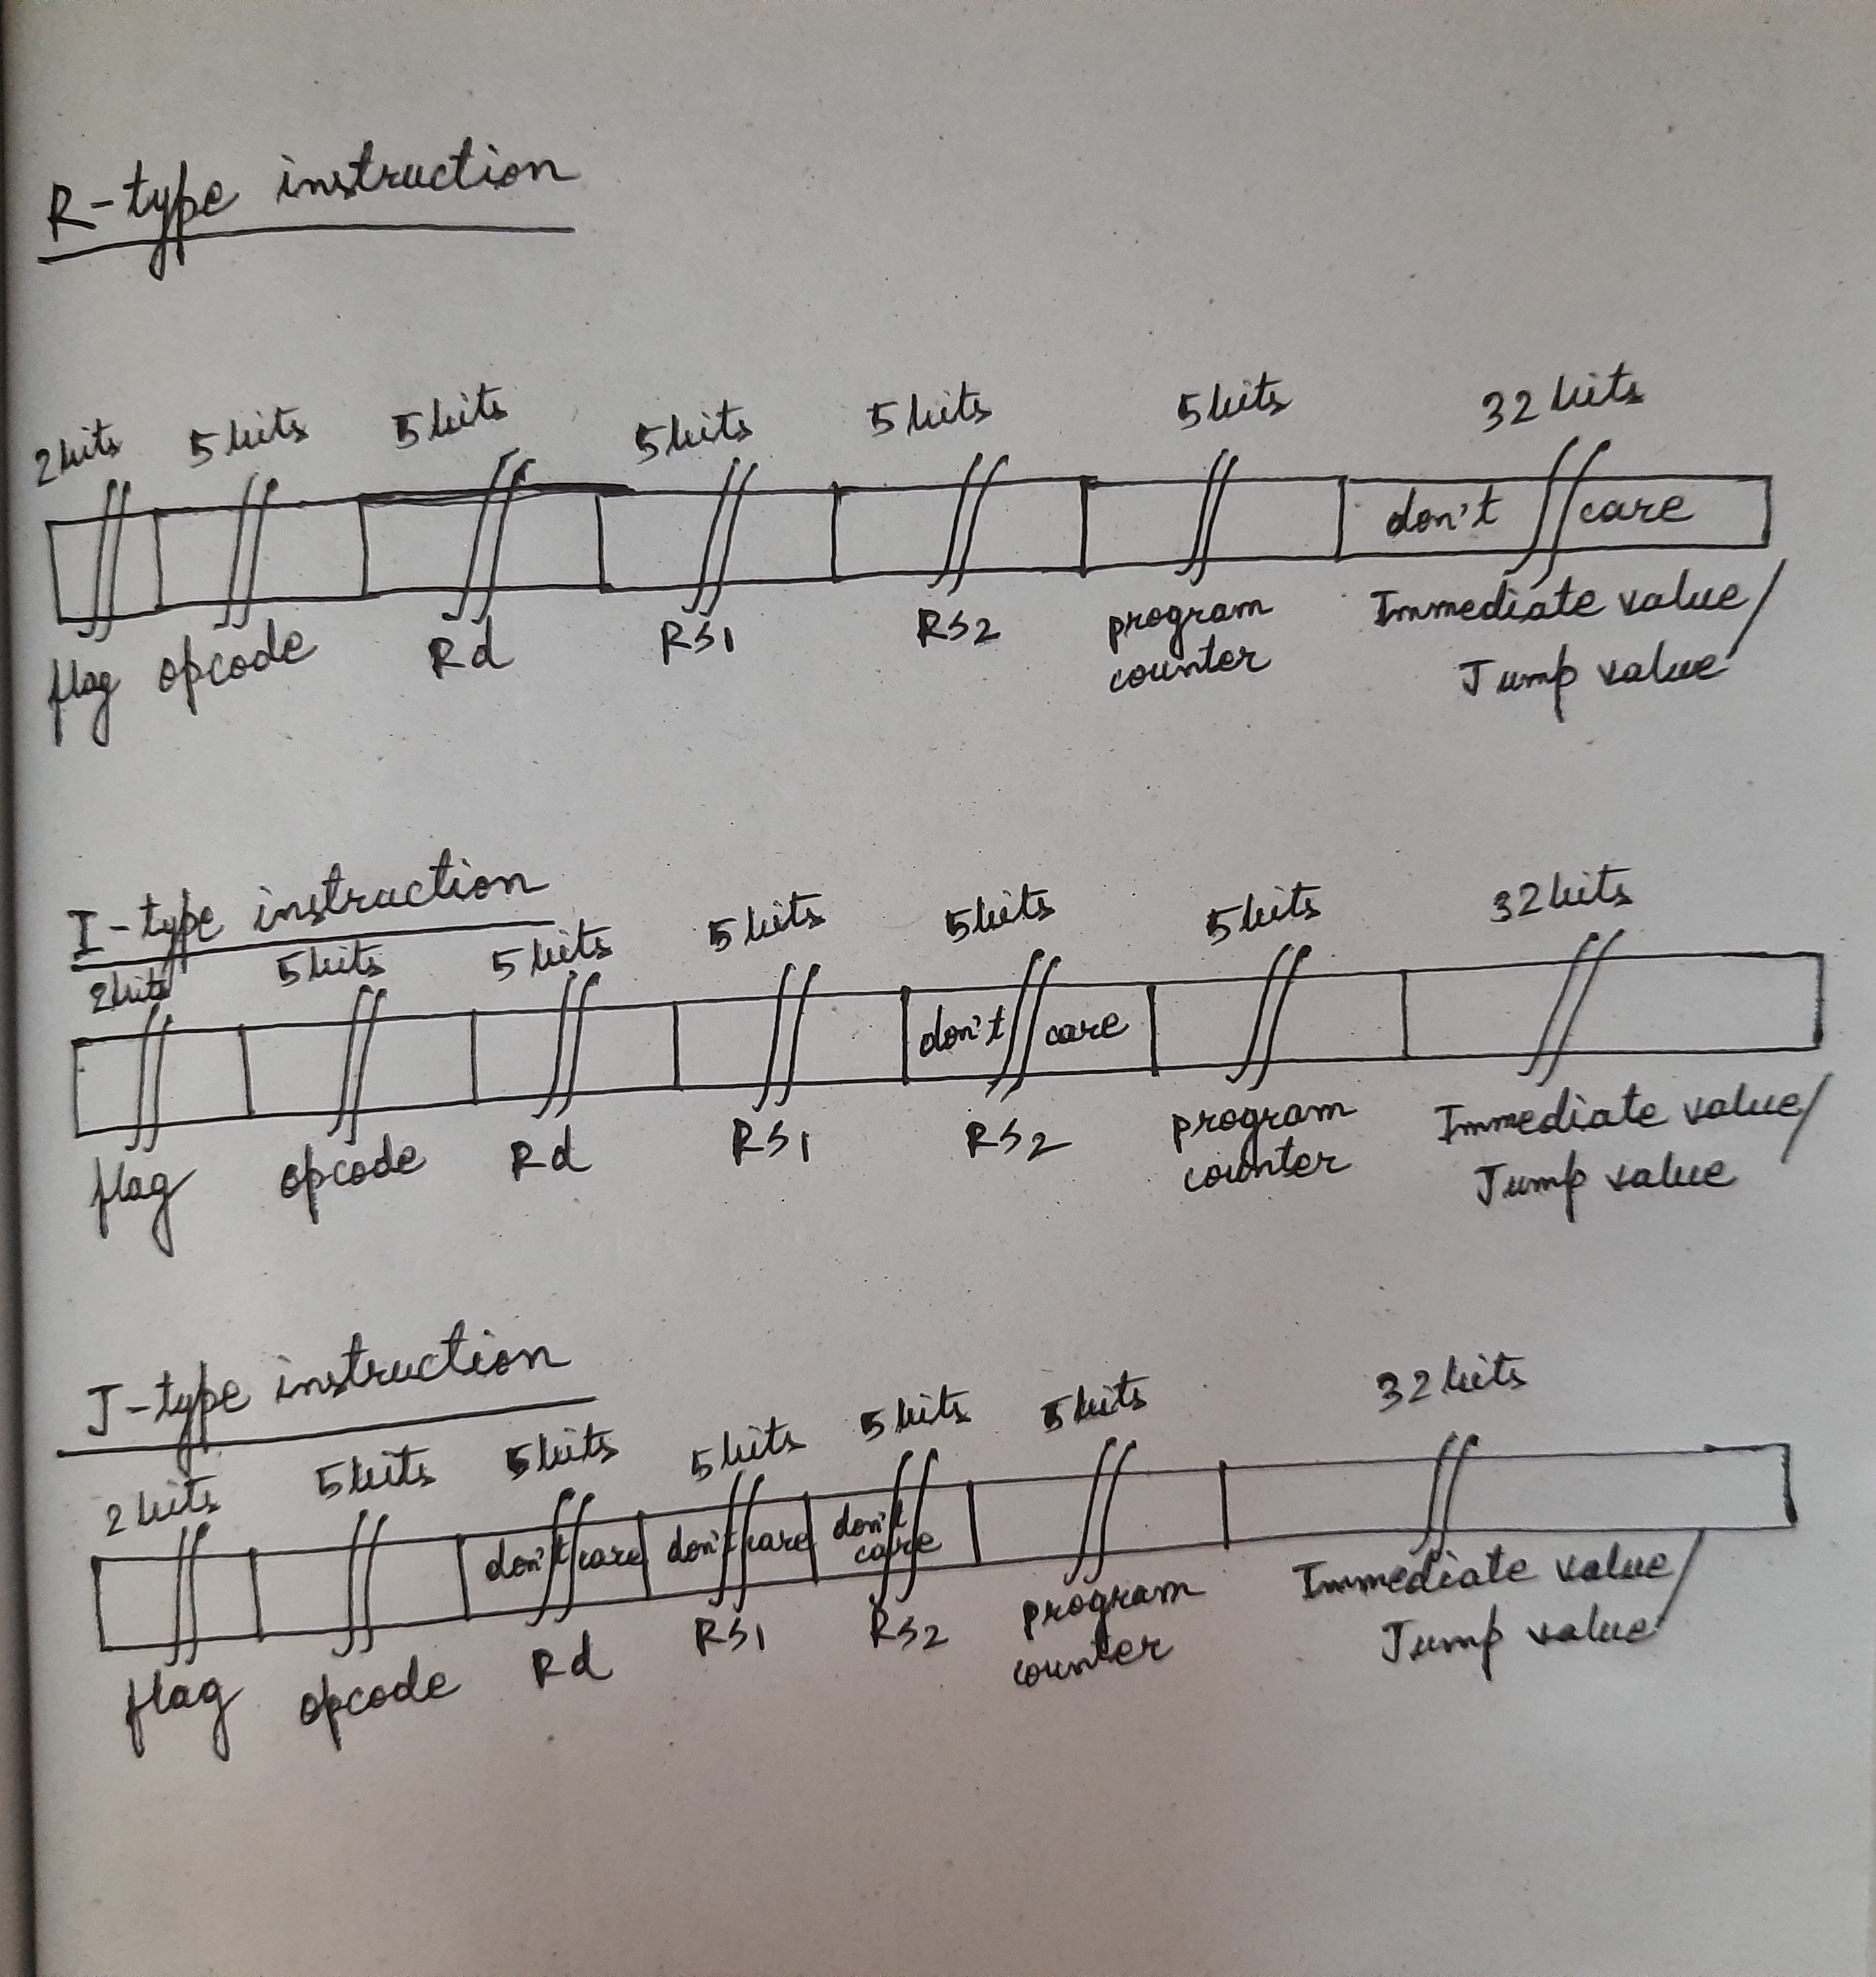 R-type instruction
2bits 5bits 5bits 5bits 5bits 5bits 32 bits
don't care
flag opcode Rd RS1 RS2 program counter Immediate value/
Jump value
I-type instruction
2bits 5bits 5bits 5bits 5bits 5bits 32bits
don't care
flag opcode Rd RS1 RS2 program counter Immediate value/
Jump value
J-type instruction
2 bits 5bits 5bits 5bits 5bits 5bits 32bits
don't care don't care don't care
flag opcode Rd RS1 RS2 program counter Immediate value/
Jump value